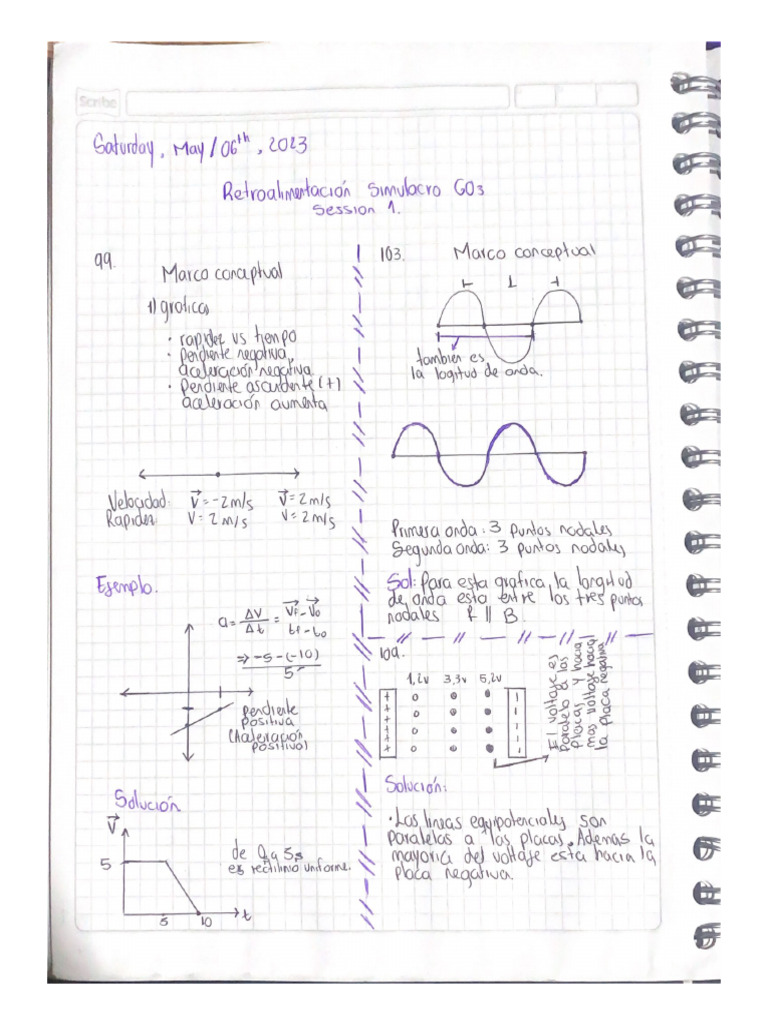 Scribe
Saturday, May/06th, 2023
Retroalimentación Simulacro G03
Session 1.
99.
Marco conceptual
1) grafica
· rapidez vs tiempo
· pendiente negativa,
aceleración negativa
· Pendiente ascendente (+)
aceleración aumenta
Velocidad: V⃗ = -2 m/s V⃗ = 2 m/s
Rapidez: V = 2 m/s V = 2 m/s
Ejemplo.
a = ΔV/Δt = V⃗f - V⃗o / tf - to
⇒ -5 - (-10) / 5
pendiente
positiva
(Aceleración
positivo)
Solución
V⃗
5
de 0 a 5s
es rectilinio uniforme.
5 10 t
103. Marco conceptual
tambien es
la logitud de onda.
Primera onda: 3 puntos nodales
Segunda onda: 3 puntos nodales
Sol: Para esta grafica, la longitud
de onda esta entre los tres puntos
nodales R // B.
109.
1,2v 3,3v 5,2v
+ -
+ -
+ -
+ -
+ -
El voltaje es
paralelo a las
placas y hacia
mas voltaje hacia
la placa negativa
Solución:
· Las lineas equipotenciales son
paralelas a las placas. Además la
mayoria del voltaje esta hacia la
placa negativa.